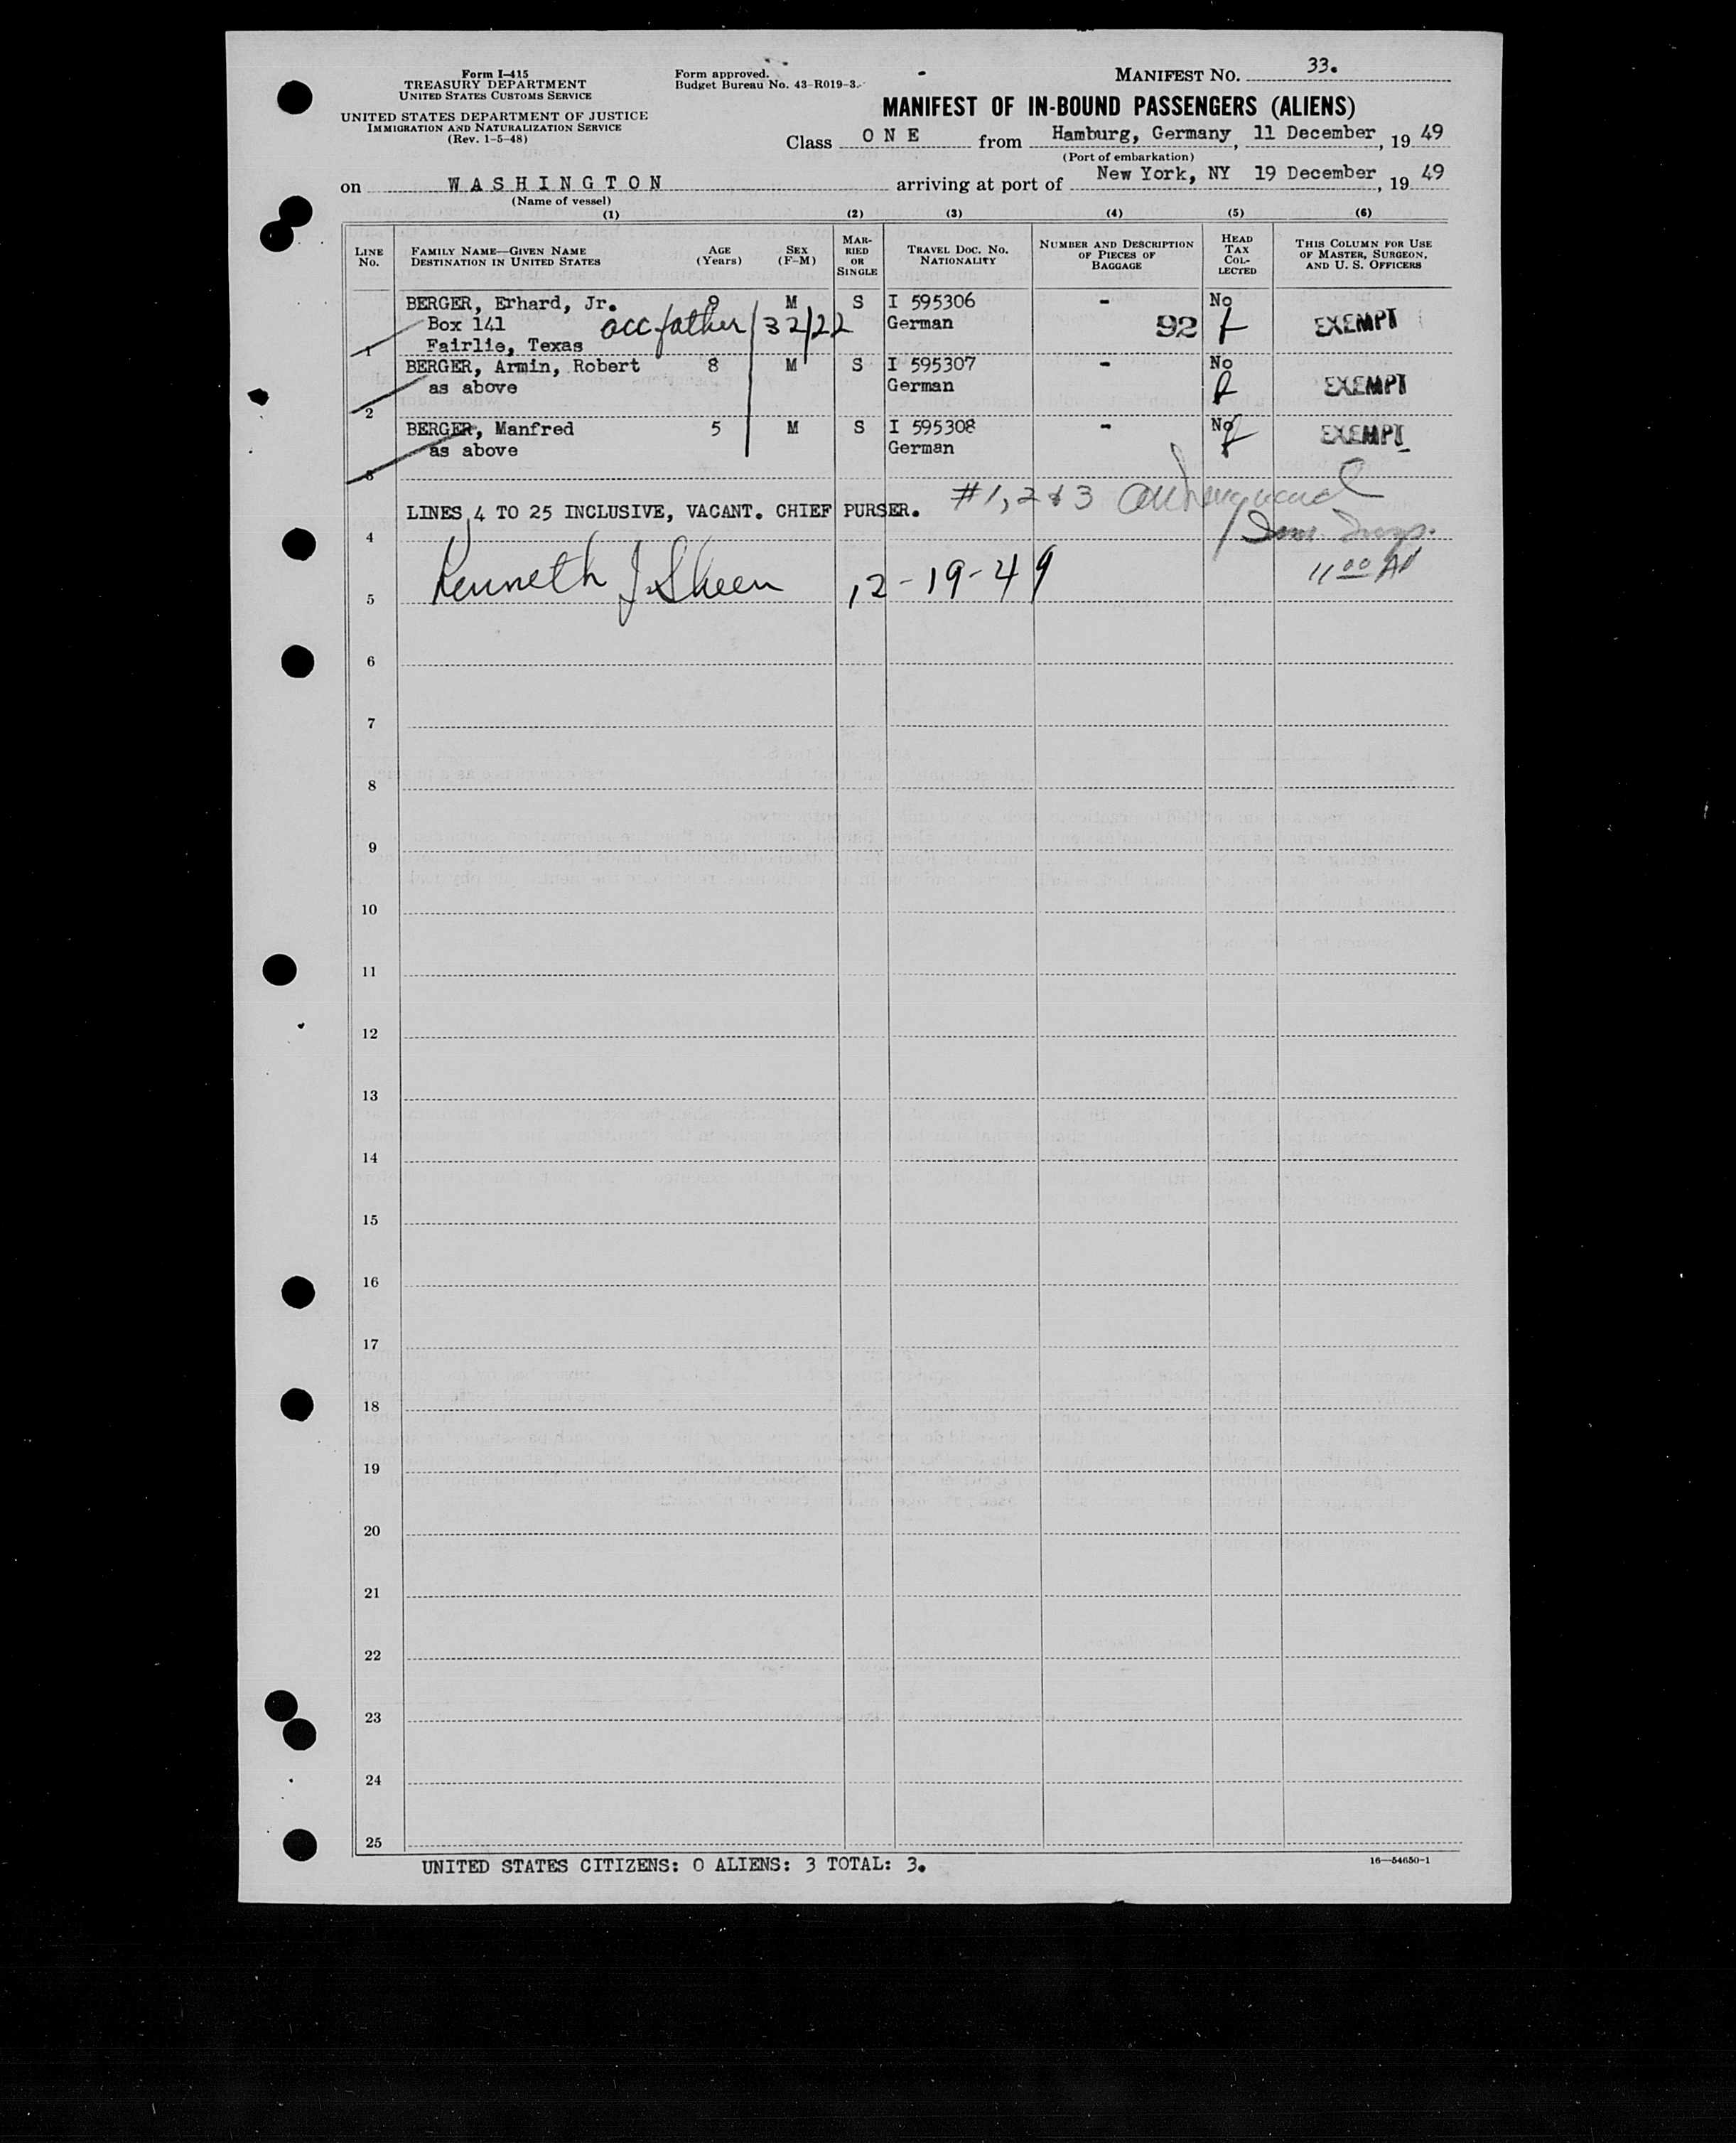 Form I-415
TREASURY DEPARTMENT
UNITED STATES CUSTOMS SERVICE
UNITED STATES DEPARTMENT OF JUSTICE
IMMIGRATION AND NATURALIZATION SERVICE
(Rev. 1-5-48)
Form approved.
Budget Bureau No. 43-R019-3.
MANIFEST NO. 33.
MANIFEST OF IN-BOUND PASSENGERS (ALIENS)
Class O N E from Hamburg, Germany, 11 December, 19 49
(Port of embarkation)
on W A S H I N G T O N arriving at port of New York, NY 19 December, 19 49
(Name of vessel)
(1) (2) (3) (4) (5) (6)
LINE No.
FAMILY NAME—GIVEN NAME
DESTINATION IN UNITED STATES
AGE (Years)
SEX (F-M)
MARRIED OR SINGLE
TRAVEL DOC. NO.
NATIONALITY
NUMBER AND DESCRIPTION OF PIECES OF BAGGAGE
HEAD TAX COLLECTED
THIS COLUMN FOR USE OF MASTER, SURGEON, AND U. S. OFFICERS
BERGER, Erhard, Jr. 9 M S I 595306 - No
Box 141 acc father/32/22 German 92 EXEMPT
1 Fairlie, Texas
BERGER, Armin, Robert 8 M S I 595307 - No
as above German EXEMPT
2
BERGER, Manfred 5 M S I 595308 - No
as above German EXEMPT
3
#1, 2 & 3
LINES 4 TO 25 INCLUSIVE, VACANT. CHIEF PURSER.
4
Kenneth J. Sheen 12-19-49 11 00 AM
5
6
7
8
9
10
11
12
13
14
15
16
17
18
19
20
21
22
23
24
25
UNITED STATES CITIZENS: 0 ALIENS: 3 TOTAL: 3.
16—54650-1